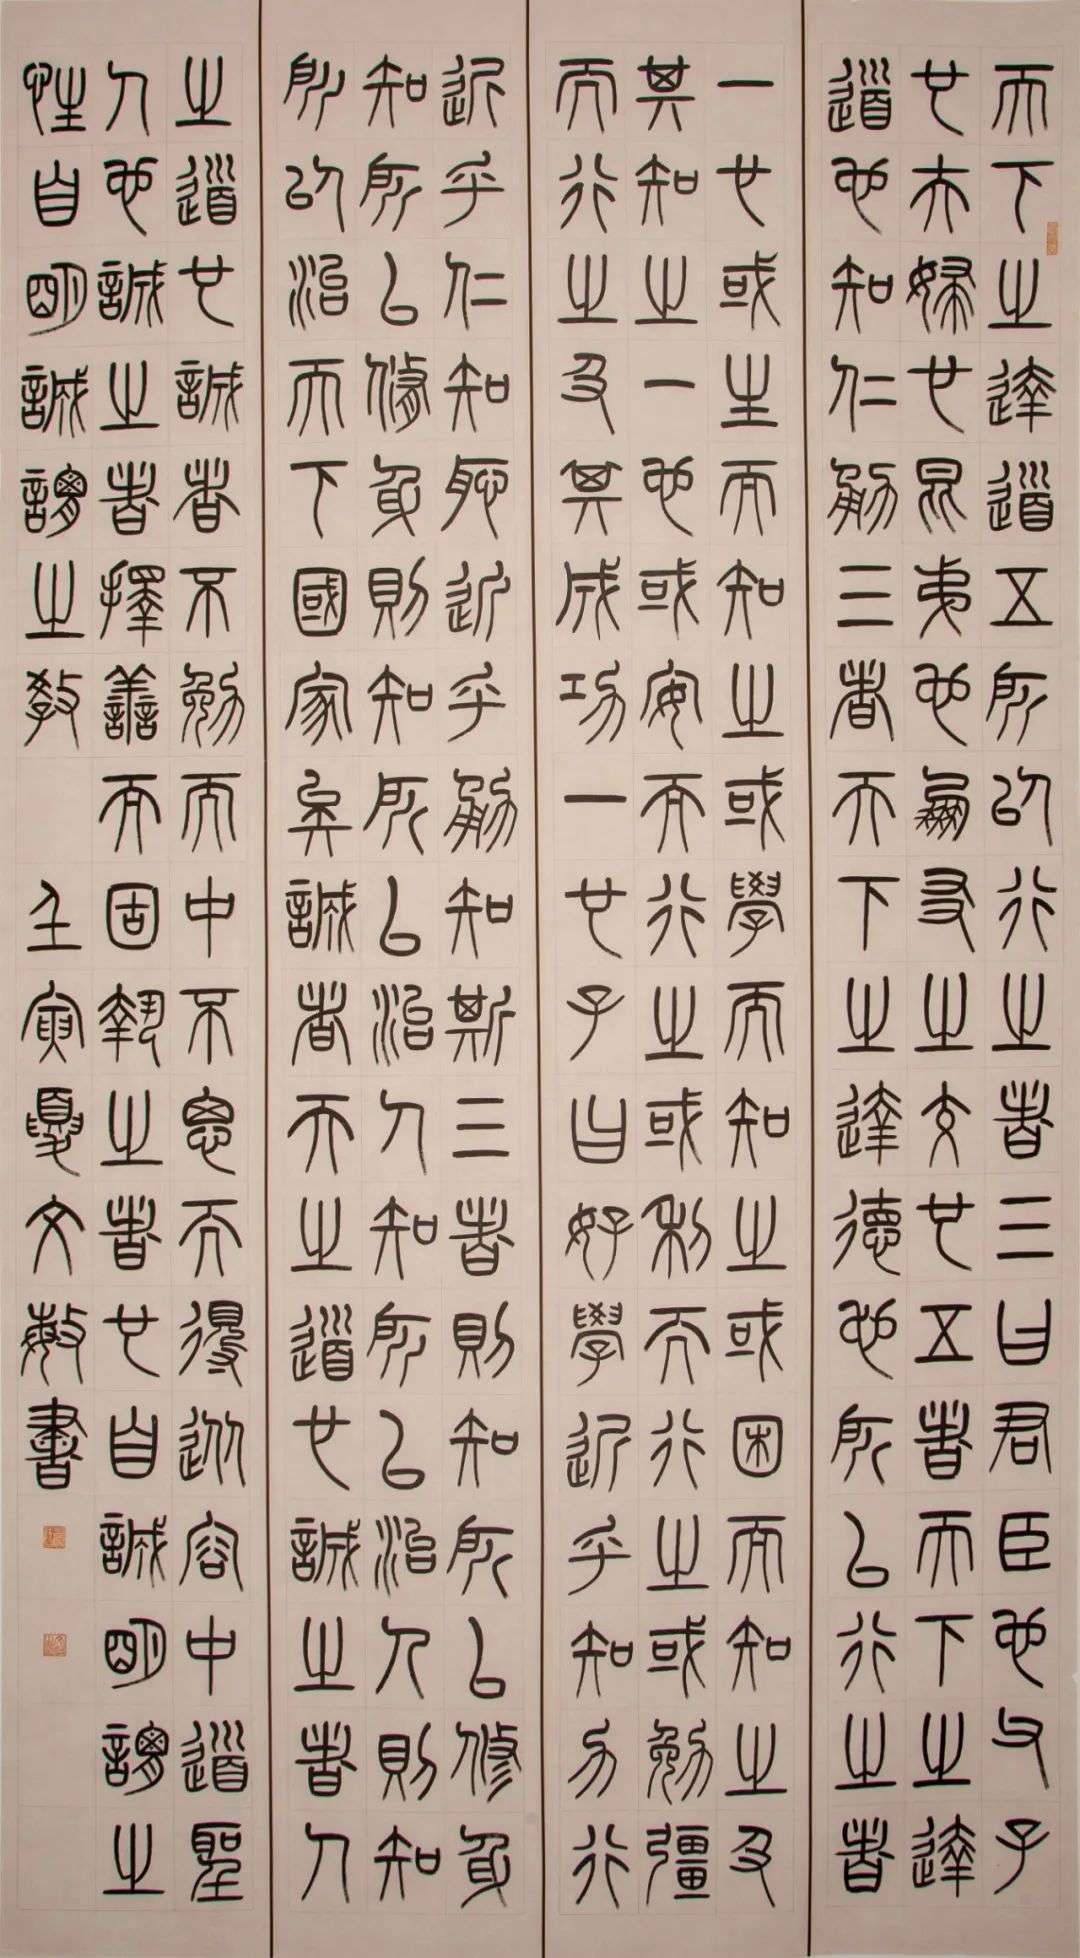 天下之達道五所以行之者三曰君臣也父子
也夫婦也昆弟也朋友之交也五者天下之達
道也知仁勇三者天下之達德也所以行之者
一也或生而知之或學而知之或困而知之及
其知之一也或安而行之或利而行之或勉彊
而行之及其成功一也子曰好學近乎知力行
近乎仁知恥近乎勇知斯三者則知所以修身
知所以修身則知所以治人知所以治人則知
所以治天下國家矣誠者天之道也誠之者人
之道也誠者不勉而中不思而得從容中道聖
人也誠之者擇善而固執之者也自誠明謂之
性自明誠謂之教 壬寅夏文書